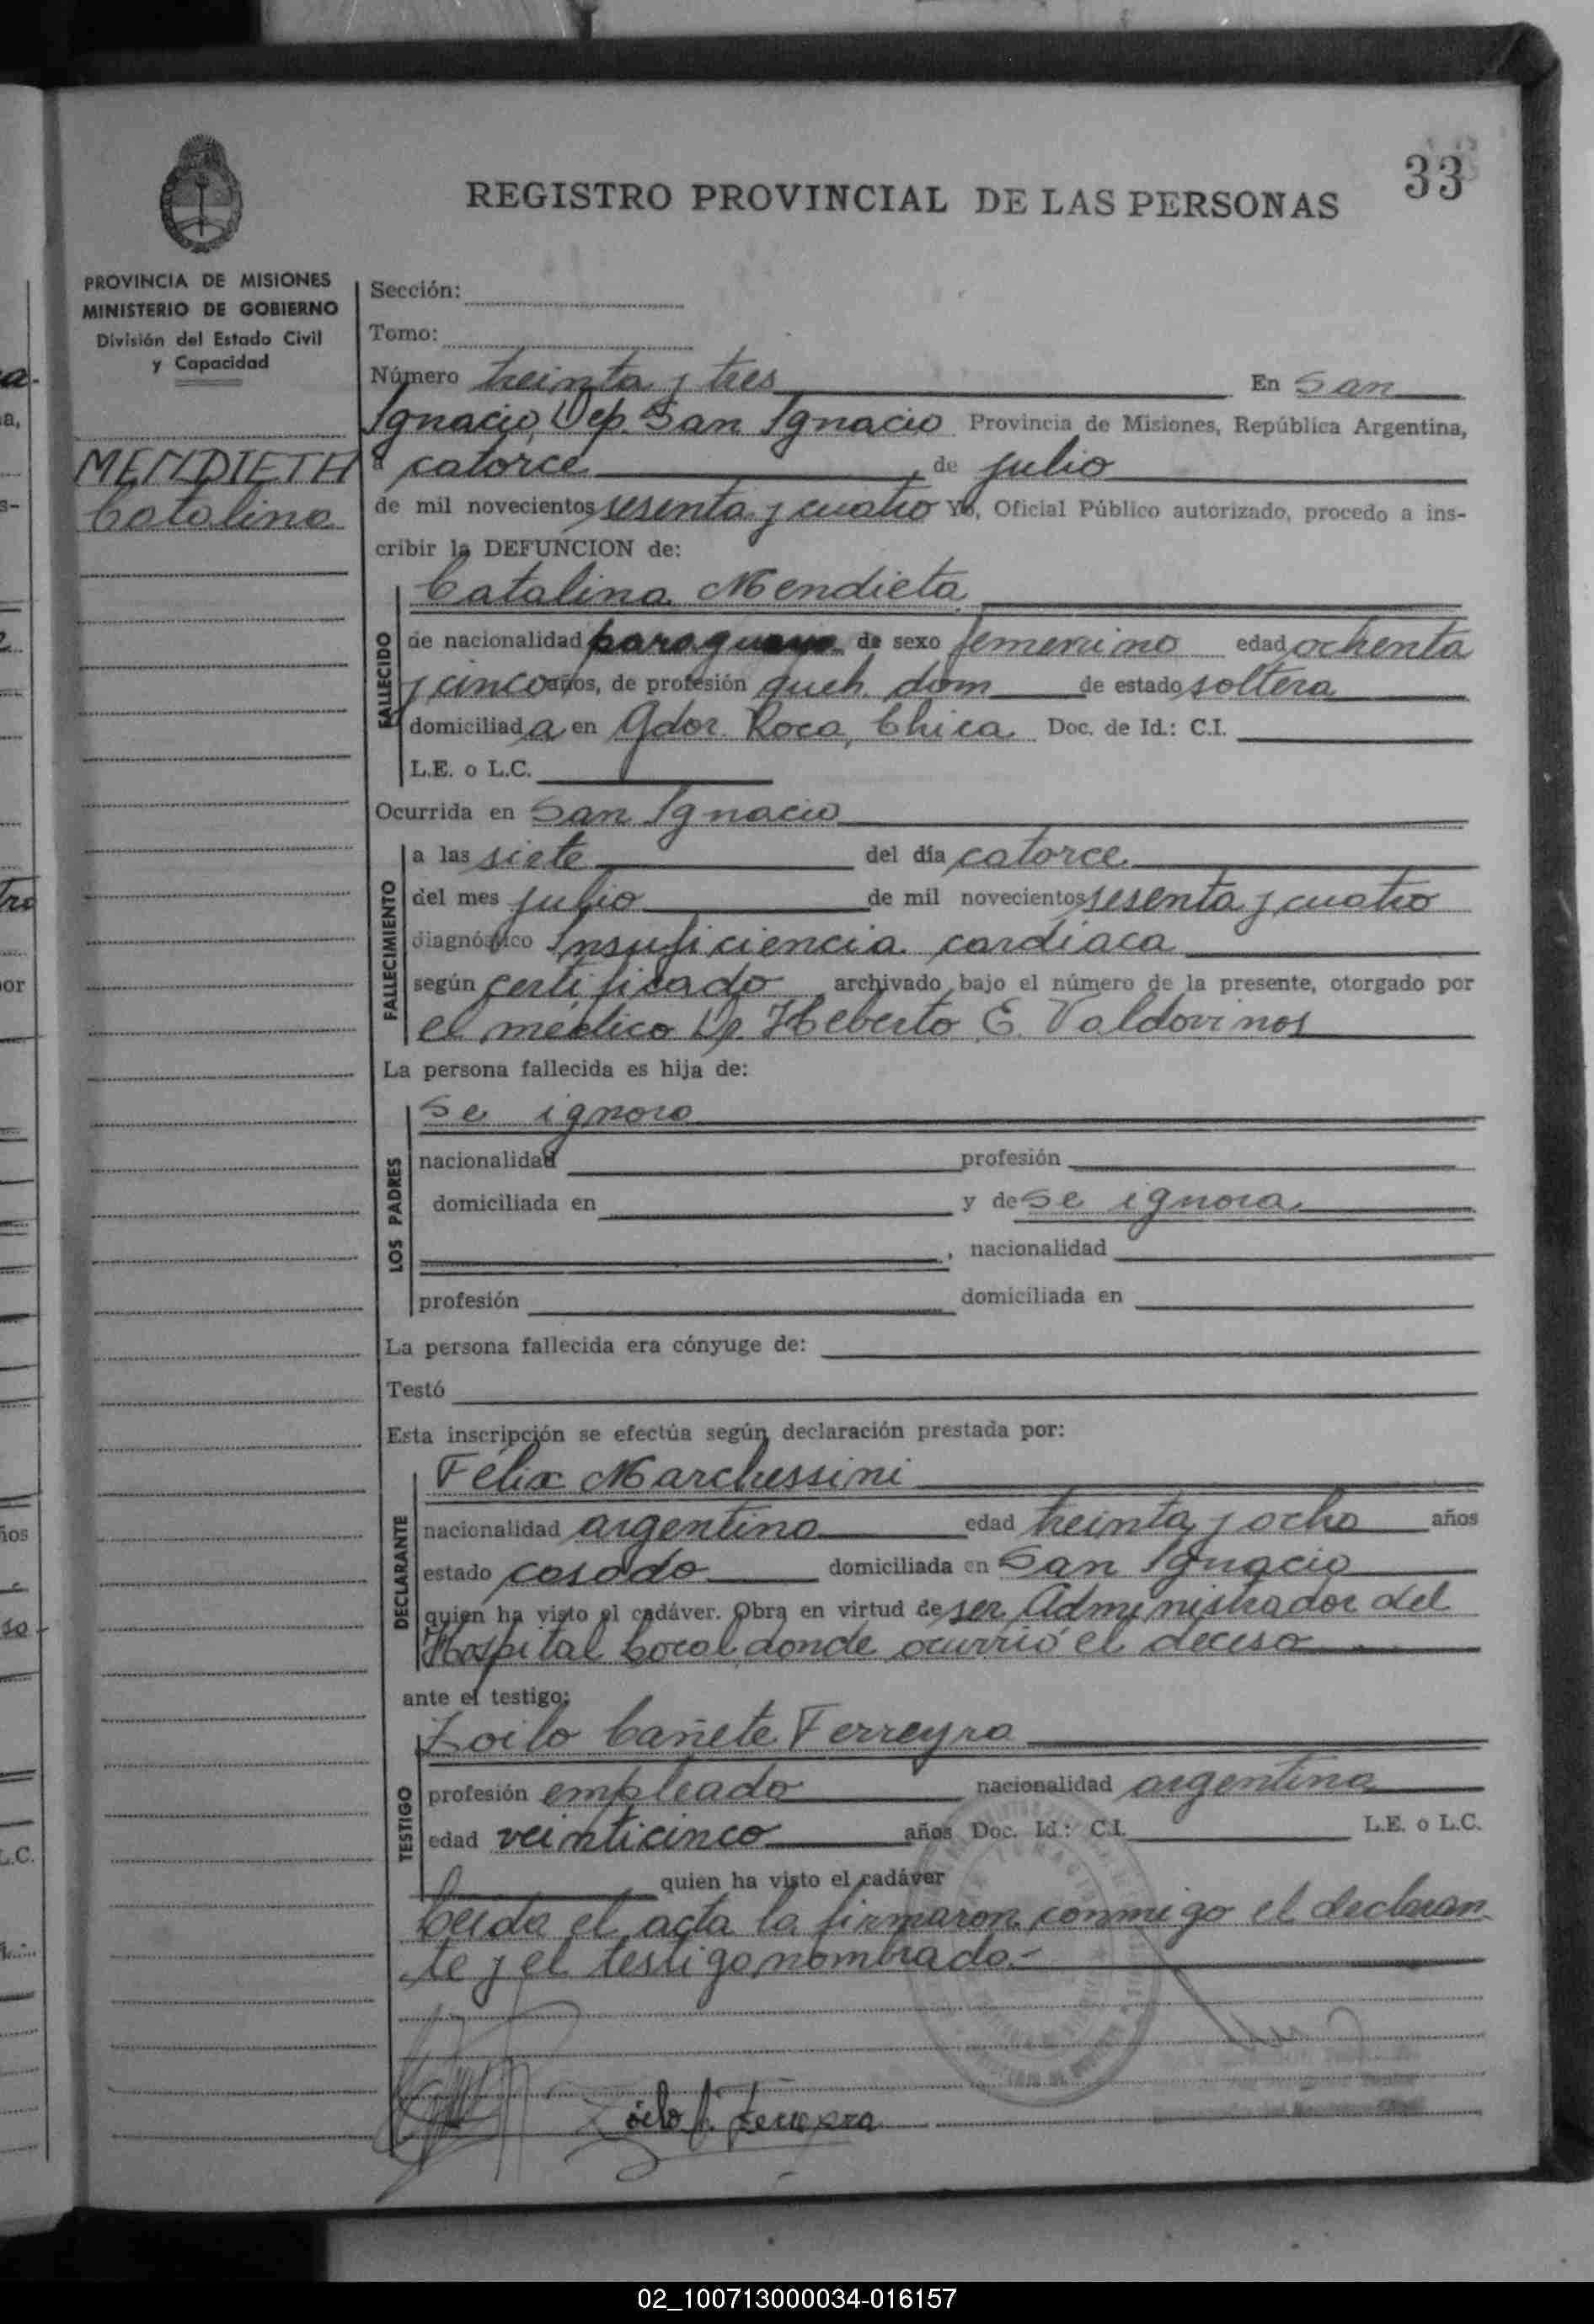 33
REGISTRO PROVINCIAL DE LAS PERSONAS
PROVINCIA DE MISIONES
MINISTERIO DE GOBIERNO
División del Estado Civil
y Capacidad
MENDIETA
Catalina
Sección:
Tomo:
Número treinta y tres En San
Ignacio, Dep. San Ignacio Provincia de Misiones, República Argentina,
a catorce de julio
de mil novecientos sesenta y cuatro Yo, Oficial Público autorizado, procedo a ins-
cribir la DEFUNCION de:
FALLECIDO
Catalina Mendieta
de nacionalidad paraguaya de sexo femenino edad ochenta
y cinco años, de profesión queh. dom de estado soltera
domiciliada en Gdor. Roca, Chica Doc. de Id.: C.I.
L.E. o L.C.
Ocurrida en San Ignacio
FALLECIMIENTO
a las siete del día catorce
del mes julio de mil novecientos sesenta y cuatro
diagnóstico Insuficiencia cardiaca
según certificado archivado bajo el número de la presente, otorgado por
el médico Dr. Heberto E. Valdovinos
La persona fallecida es hija de:
LOS PADRES
Se ignora
nacionalidad profesión
domiciliada en y de Se ignora
, nacionalidad
profesión domiciliada en
La persona fallecida era cónyuge de:
Testó
Esta inscripción se efectúa según declaración prestada por:
DECLARANTE
Félix Marchessini
nacionalidad argentina edad treinta y ocho años
estado casado domiciliada en San Ignacio
quien ha visto el cadáver. Obra en virtud de ser Administrador del
Hospital local donde ocurrió el deceso
ante el testigo:
TESTIGO
Zoilo Cañete Ferreyra
profesión empleado nacionalidad argentina
edad veinticinco años Doc. Id.: C.I. L.E. o L.C.
quien ha visto el cadáver
Leida el acta la firmaron conmigo el declaran
te y el testigo nombrado.-
Zoilo C. Ferreyra
02_100713000034-016157